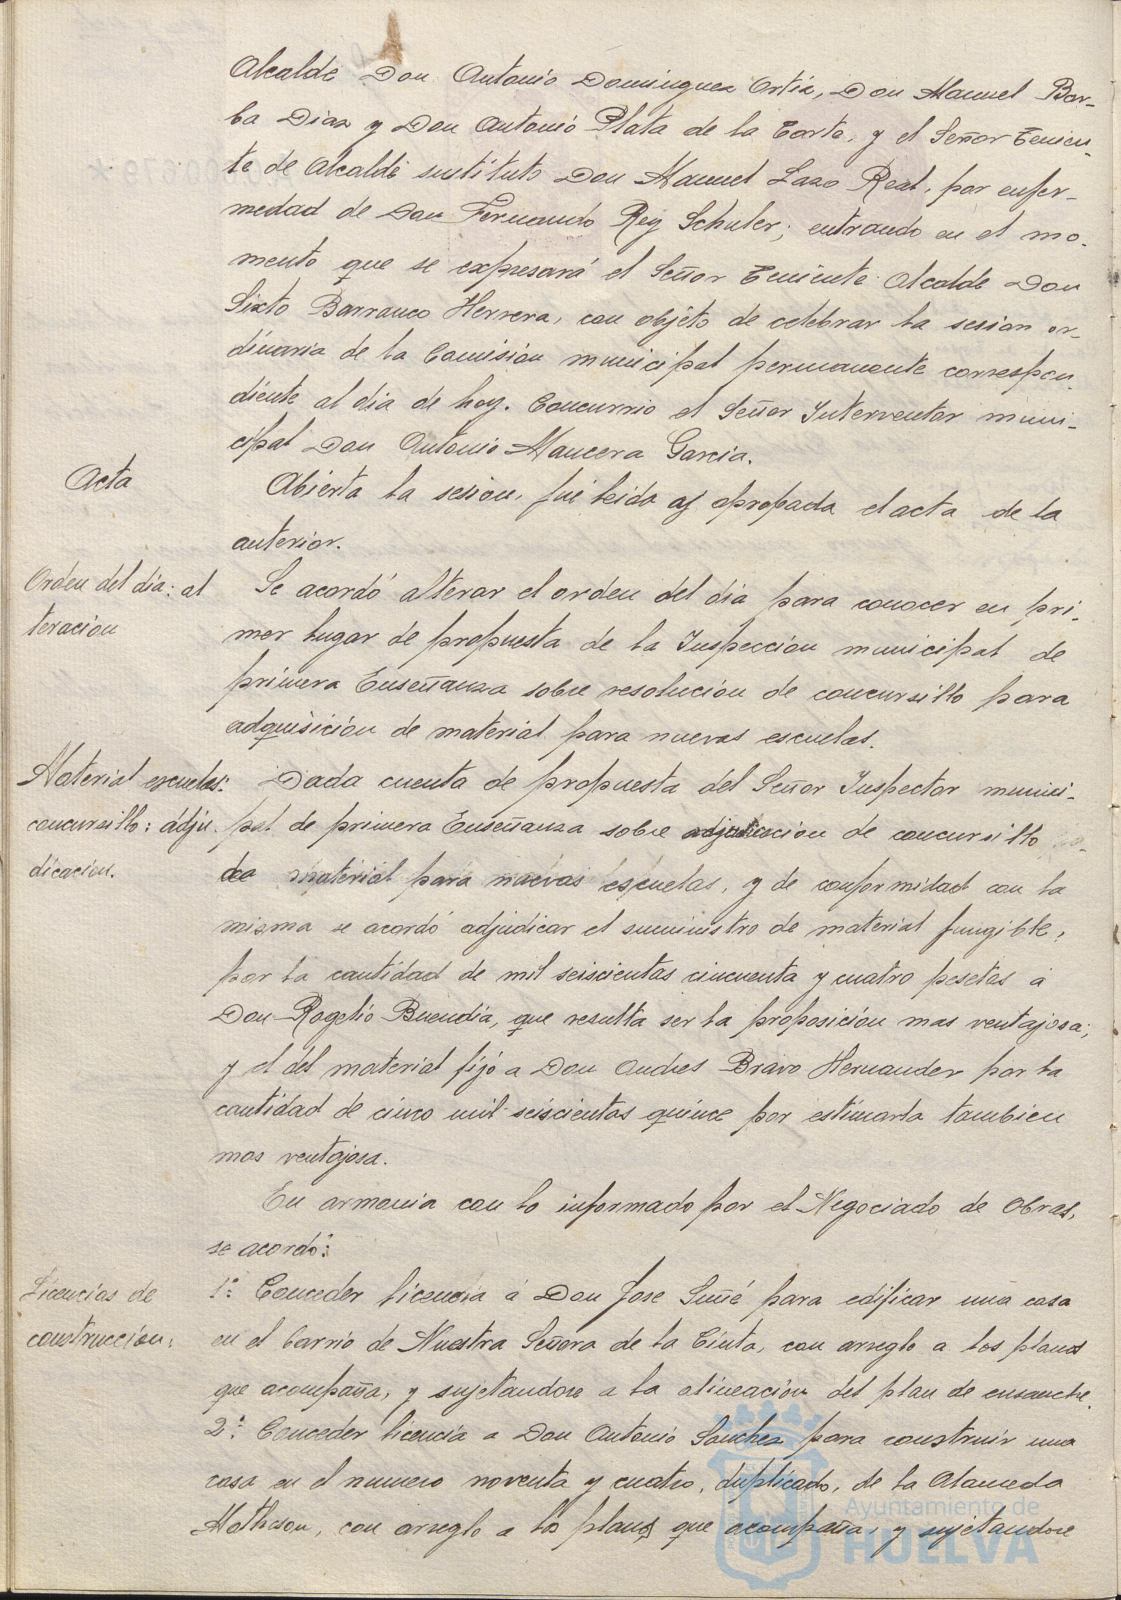 Alcalde Don Antonio Dominguez Ortiz, Don Manuel Bar-
ba Diaz y Don Antonio Plata de la Corte, y el Señor Tenien-
te de Alcalde sustituto Don Manuel Lazo Real, por enfer-
medad de Don Fernando Rey Schuler; entrando en el mo-
mento que se expresará el Señor Teniente Alcalde Don
Sixto Barranco Herrera, con objeto de celebrar la sesion or-
dinaria de la Comisión municipal permanente correspon-
diente al dia de hoy. Concurrio el Señor Interventor muni-
cipal Don Antonio Mancera Garcia.
Acta
Abierta la sesion, fué leida y aprobada el acta de la
anterior.
Orden del dia: al
teración
Se acordó alterar el orden del dia para conocer en pri-
mer lugar de propuesta de la Inspección municipal de
primera Enseñanza sobre resolucion de concursillo para
adquisición de material para nuevas escuelas.
Material escuelas:
concursillo: adju-
dicación.
Dada cuenta de propuesta del Señor Inspector munici-
pal de primera Enseñanza sobre adjudicación de concursillo
de material para nuevas escuelas, y de conformidad con la
misma se acordó adjudicar el suministro de material fungible,
por la cantidad de mil seiscientas cincuenta y cuatro pesetas á
Don Rogelio Buendia, que resulta ser la proposición mas ventajosa;
y el del material fijo a Don Andres Bravo Hernandez por la
cantidad de cinco mil seiscientas quince por estimarla tambien
mas ventajosa.
En armonia con lo informado por el Negociado de Obras,
se acordó:
Licencias de
construcción:
1º: Conceder licencia á Don Jose Suñé para edificar una casa
en el barrio de Nuestra Señora de la Cinta, con arreglo a los planos
que acompaña, y sujetandose a la alineación del plan de ensanche.
2º: Conceder licencia a Don Antonio Sanchez para construir una
casa en el numero noventa y cuatro, duplicado, de la Alameda
Matheson, con arreglo a los planos que acompaña, y sujetandose
Ayuntamiento de
HUELVA